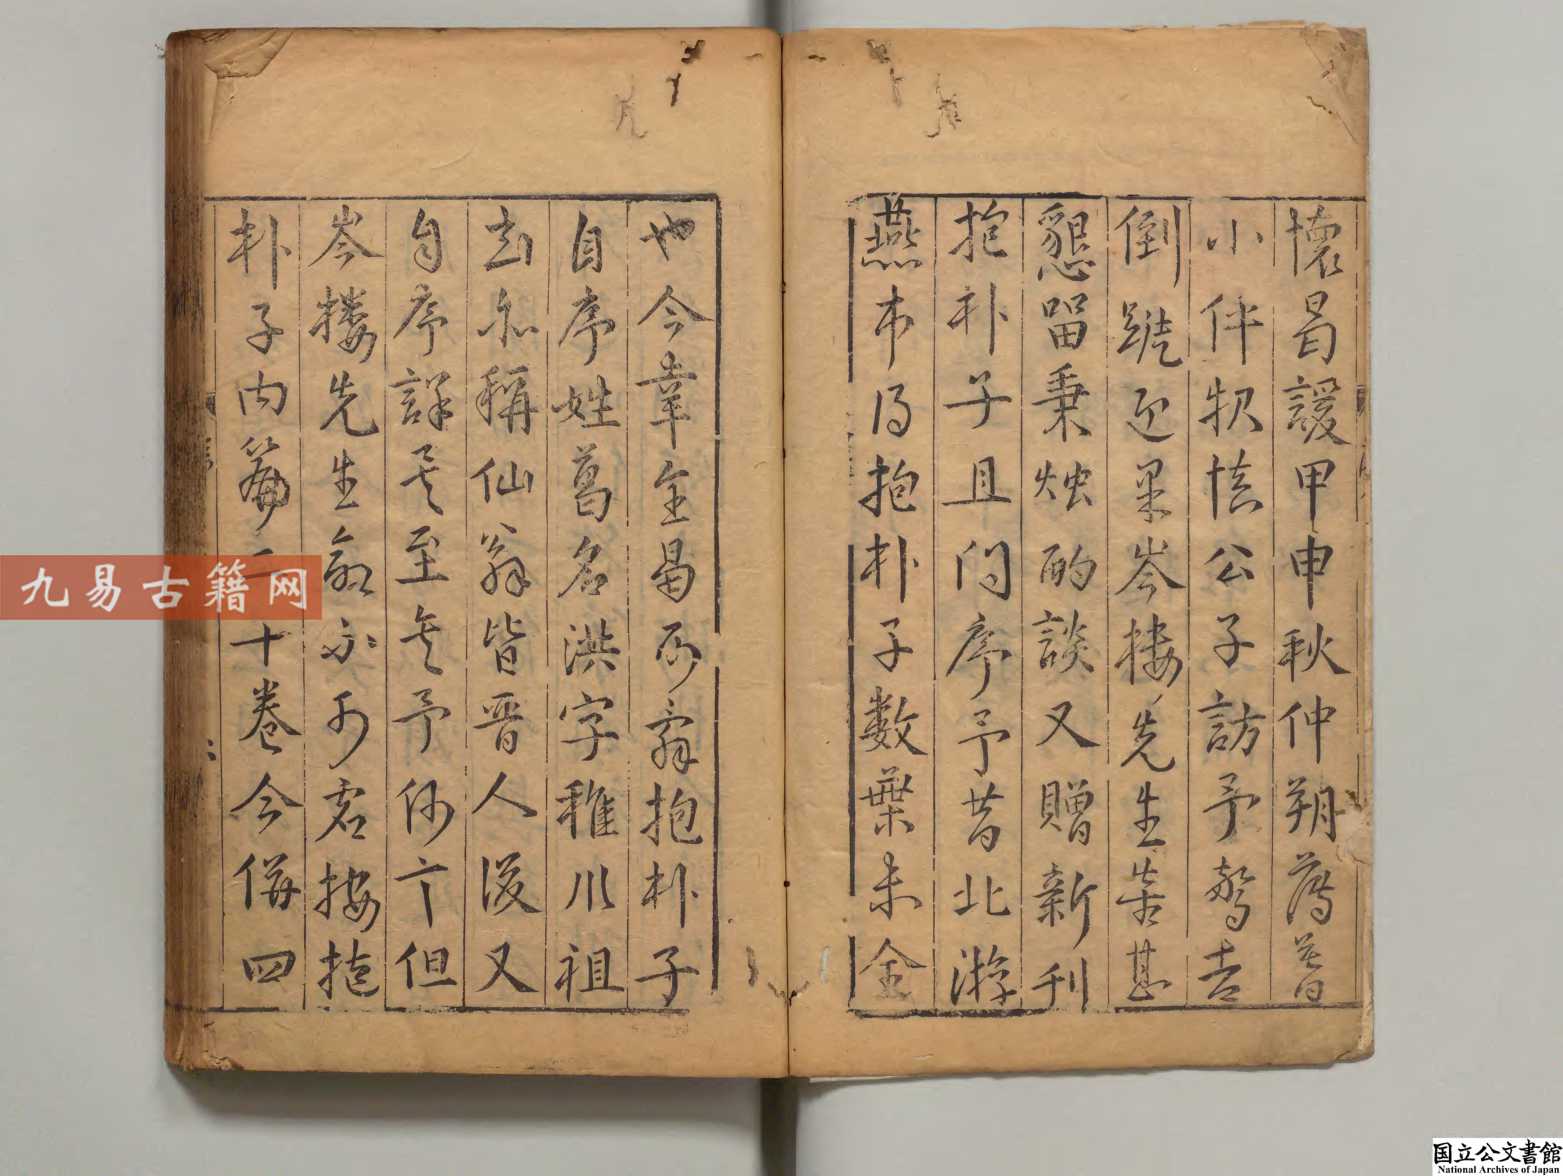 懷曷諼甲申秋仲朔薄暮
小伻報慎公子訪予驚喜
倒跣迎果岑樓先生告甚
懇留秉燭酌談又贈新刊
抱朴子且问序予昔北游
燕市得抱朴子數葉未全
也今幸全曷可辭抱朴子
自序姓葛名洪字稚川祖
玄亦稱仙翁皆晋人後又
自序詳矣至矣予何言但
岑樓先生命亦不可虛按抱
朴子内篇二十卷今併四
九易古籍网
国立公文書館
National Archives of Japan